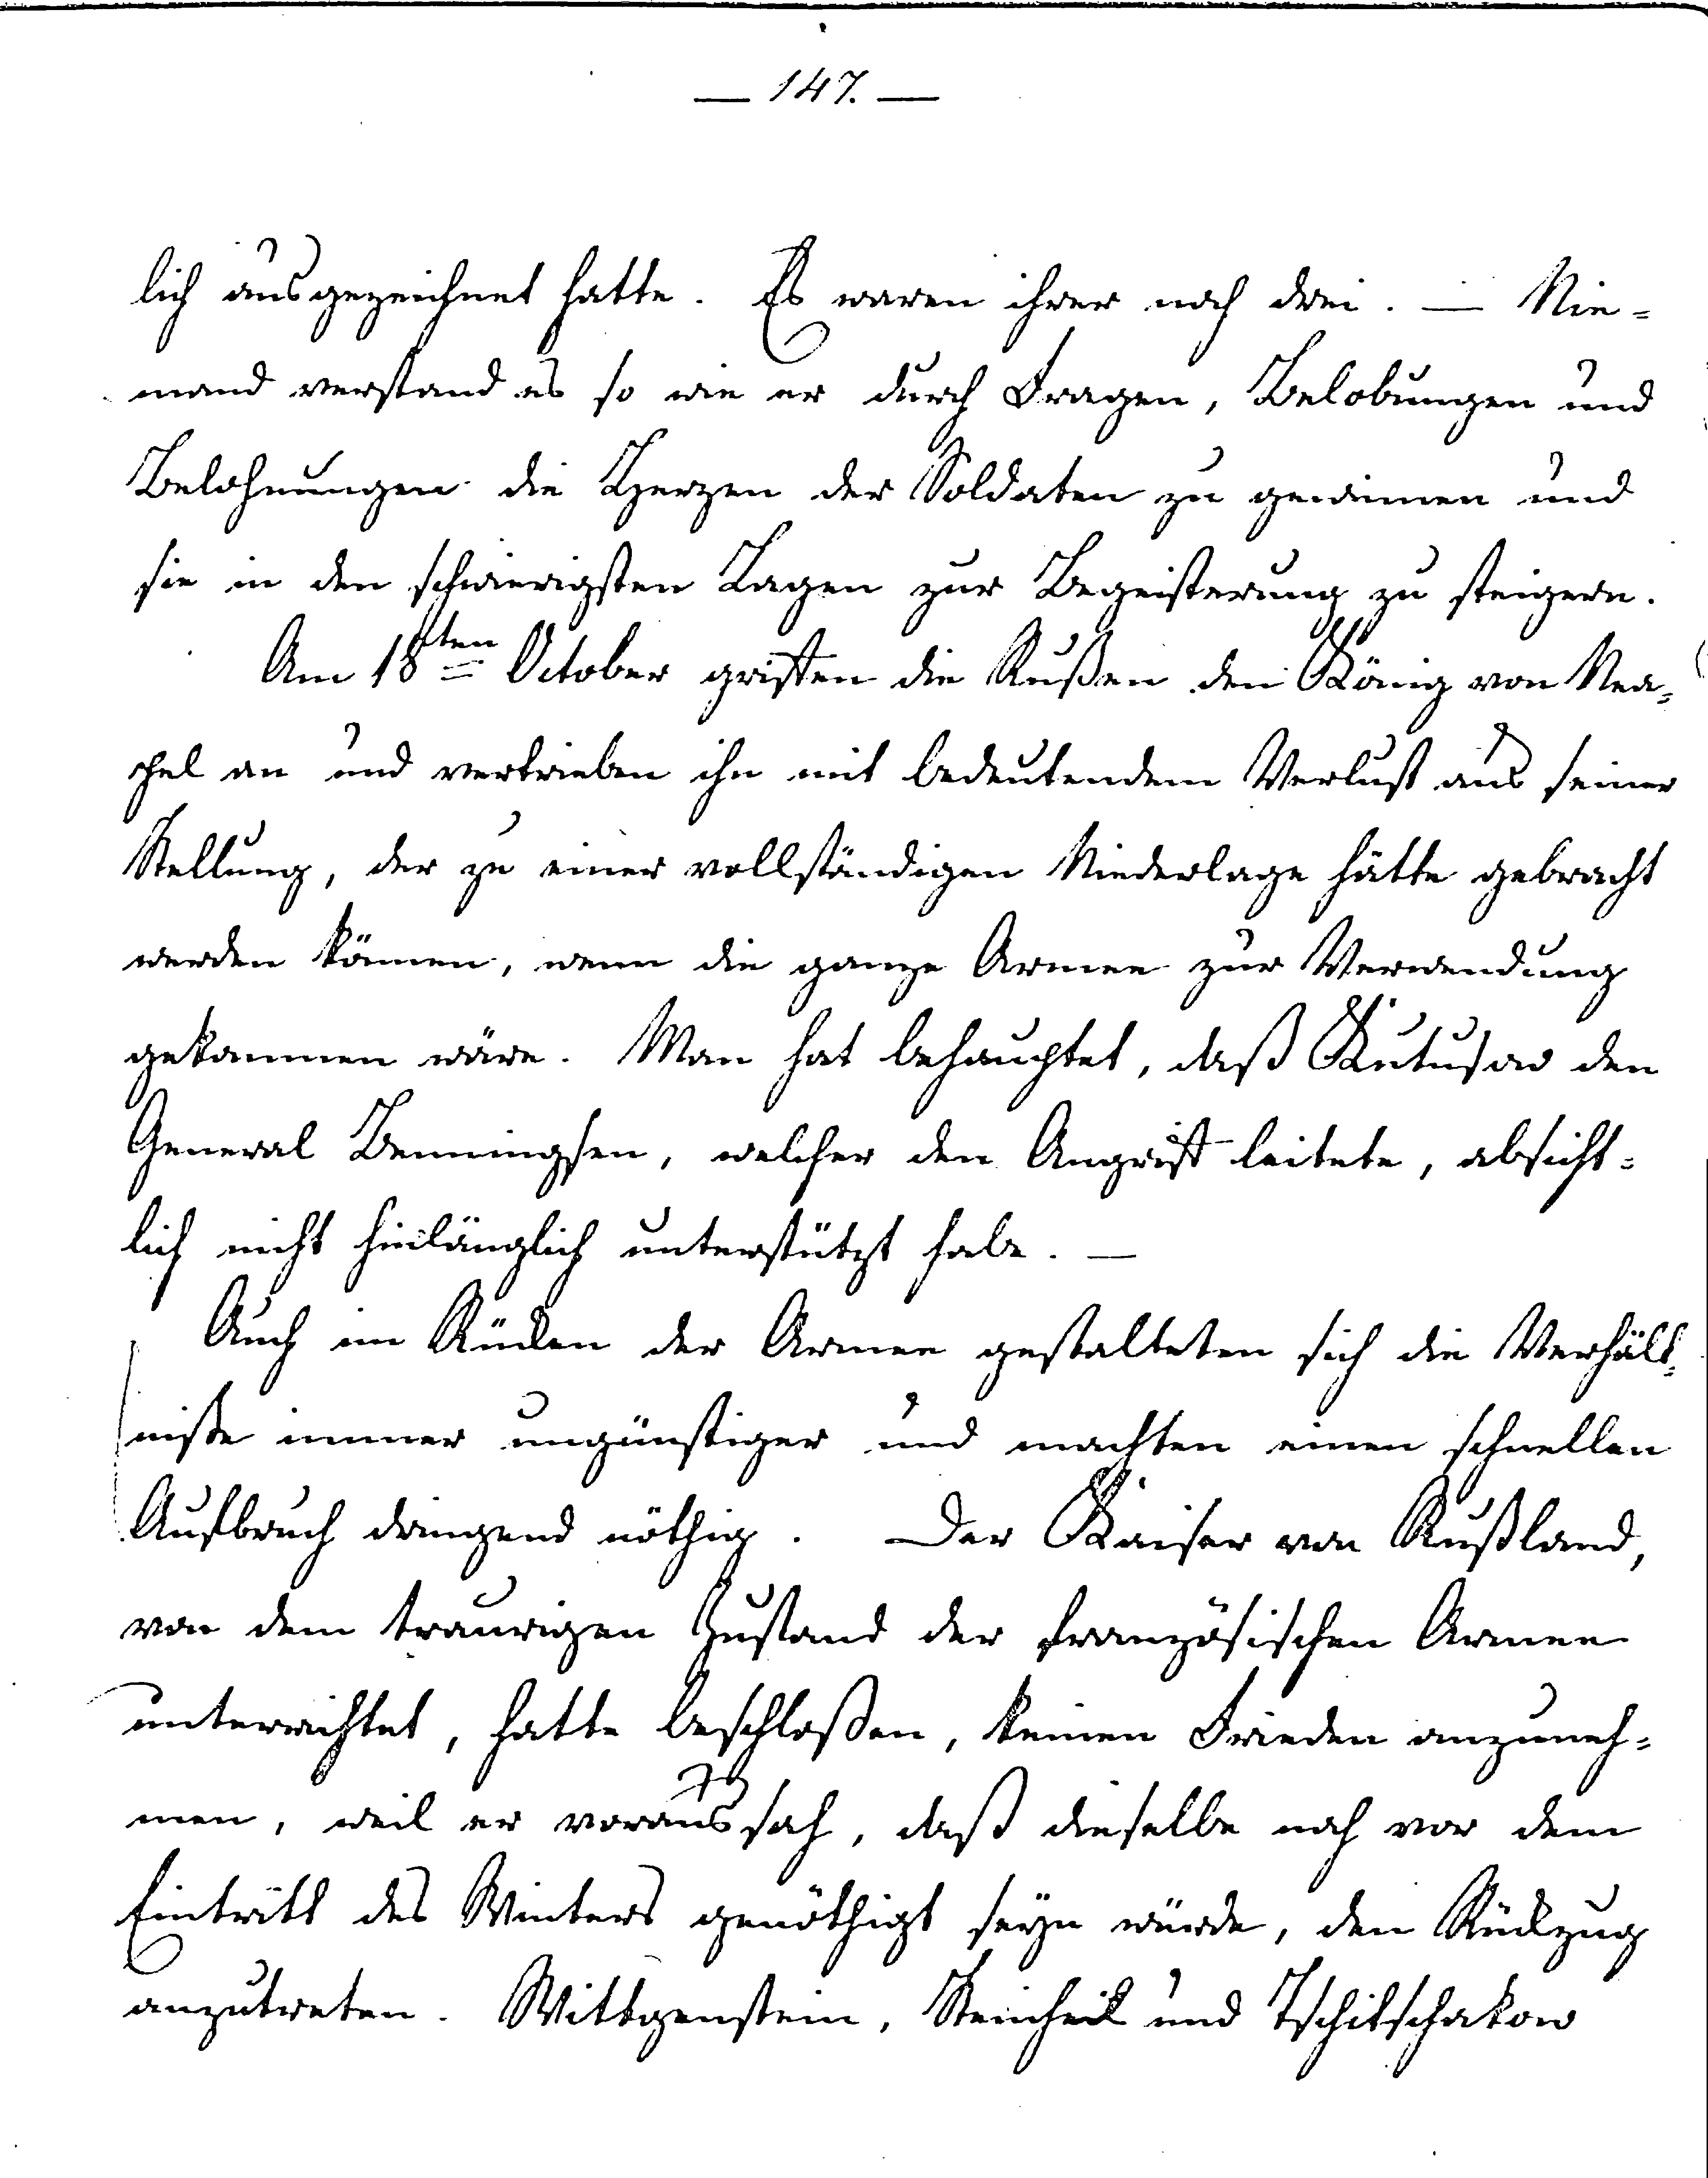 — 147. —
lich ausgezeichnet hatte. Es waren ihrer noch drei. — Nie=
mand verstand es so wie er durch Fragen, Belobungen und
Belohnungen die Herzen der Soldaten zu gewinnen und
sie in den schwierigsten Lagen zur Begeisterung zu steigern.
Am 18ten October griffen die Rußen den König von Nea=
pel an und vertrieben ihn mit bedeutendem Verlust aus seiner
Stellung, der zu einer vollständigen Niederlage hätte gebracht
werden können, wenn die ganze Armee zur Verwendung
gekommen wäre. Man hat behauptet, daß Kutusow den
General Benningsen, welcher den Angriff leitete, absicht=
lich nicht hinlänglich unterstützt habe. —
Auch im Rücken der Armee gestalteten sich die Verhält=
niße immer ungünstiger und machten einen schnellen
Aufbruch dringend nöthig. Der Kaiser von Rußland,
von dem traurigen Zustand der französischen Armee
unterrichtet, hatte beschloßen, keinen Frieden anzuneh=
men, weil er voraus sah, daß dieselbe noch vor dem
Eintritt des Winters genöthigt seyn würde, den Rückzug
anzutreten. Wittgenstein, Steinheil und Tschitschakow